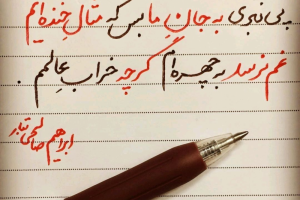 پی نبری به جان ما بس که مثال خنده‌ایم
غم نرسد به چهره‌ام گرچه خراب عالمم .
ابراهیم صالحی تبار